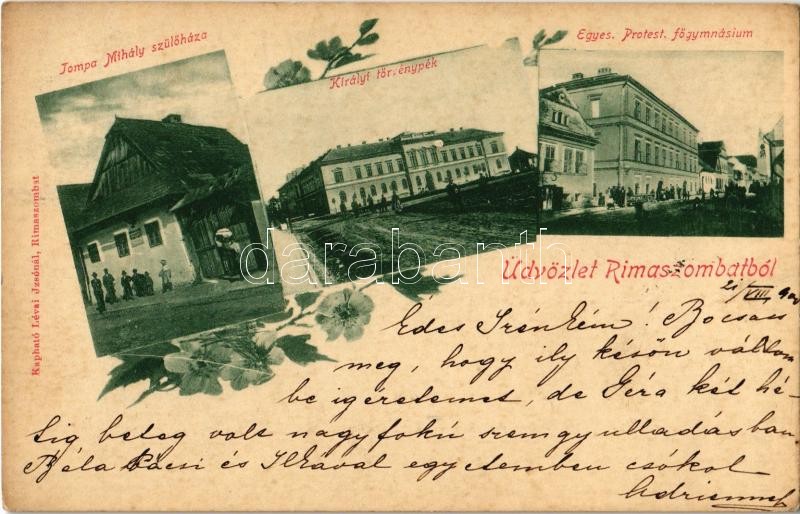 Tompa Mihály szülőháza
Királyi törvénypék
Egyes. Protest. főgymnásium
Kapható Lévai Jzsónál, Rimaszombat
darabanth
Üdvözlet Rimaszombatból
21/VIII
Édes Irénkém! Bocsáss
meg, hogy ily későn váltom
be igéretemet, de Géra két hé-
tig beteg volt nagyfokú szemgyulladásban
Béla bácsi és Ilkával egyetemben csókol
Adriennef